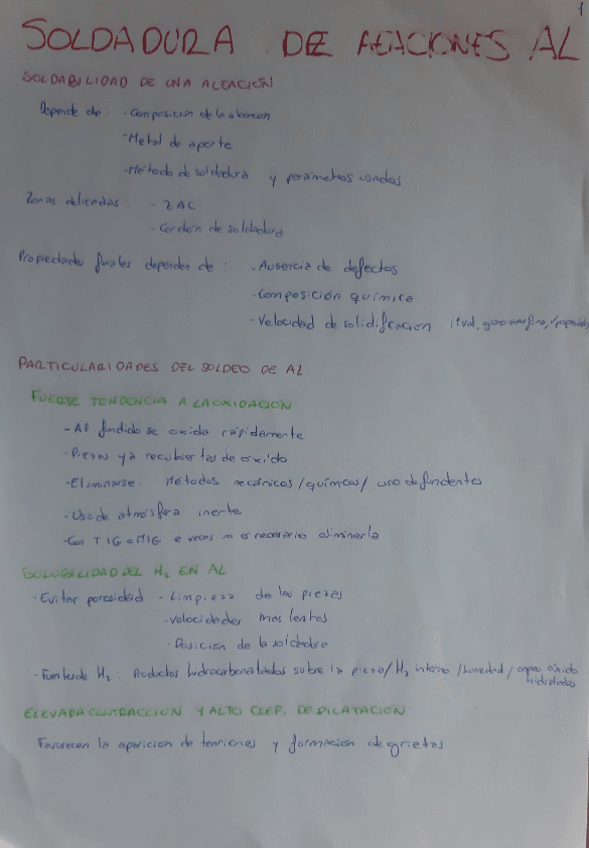 1
SOLDADURA DE AEACIONES AL
SOLDABILIDAD DE UNA ALEACIÓN
Depende de: - Composicion de la aleacion
- Metal de aporte
- Método de soldadura y parámetros usados
Zonas delicadas: - ZAC
- Cordón de soldadura
Propiedades finales dependen de: - Ausencia de defectos
- Composición química
- Velocidad de solidificacion (↑vel, grano mas fino,
PARTICULARIDADES DEL SOLDEO DE AL
FUERTE TENDENCIA A LA OXIDACIÓN
- Al fundido se oxida rápidamente.
- Piezas ya recubiertas de oxido
- Eliminarse: Métodos mecánicos/químicos/ uso de fundentes
- Uso de atmósfera inerte
- Con TIG o MIG a veces no es necesario eliminarla
SOLUBILIDAD DEL H2 EN AL
- Evitar porosidad - Limpieza de las piezas
- Velocidades mas lentas
- Posicion de la soldadura
- Fuentes de H2: Productos hidrocarbonatados sobre la pieza/H2 interno/humedad/capas oxido
hidratadas
ELEVADA CONTRACCION Y ALTO COEF. DE DILATACIÓN
Favorecen la aparicion de tensiones y formacion de grietas